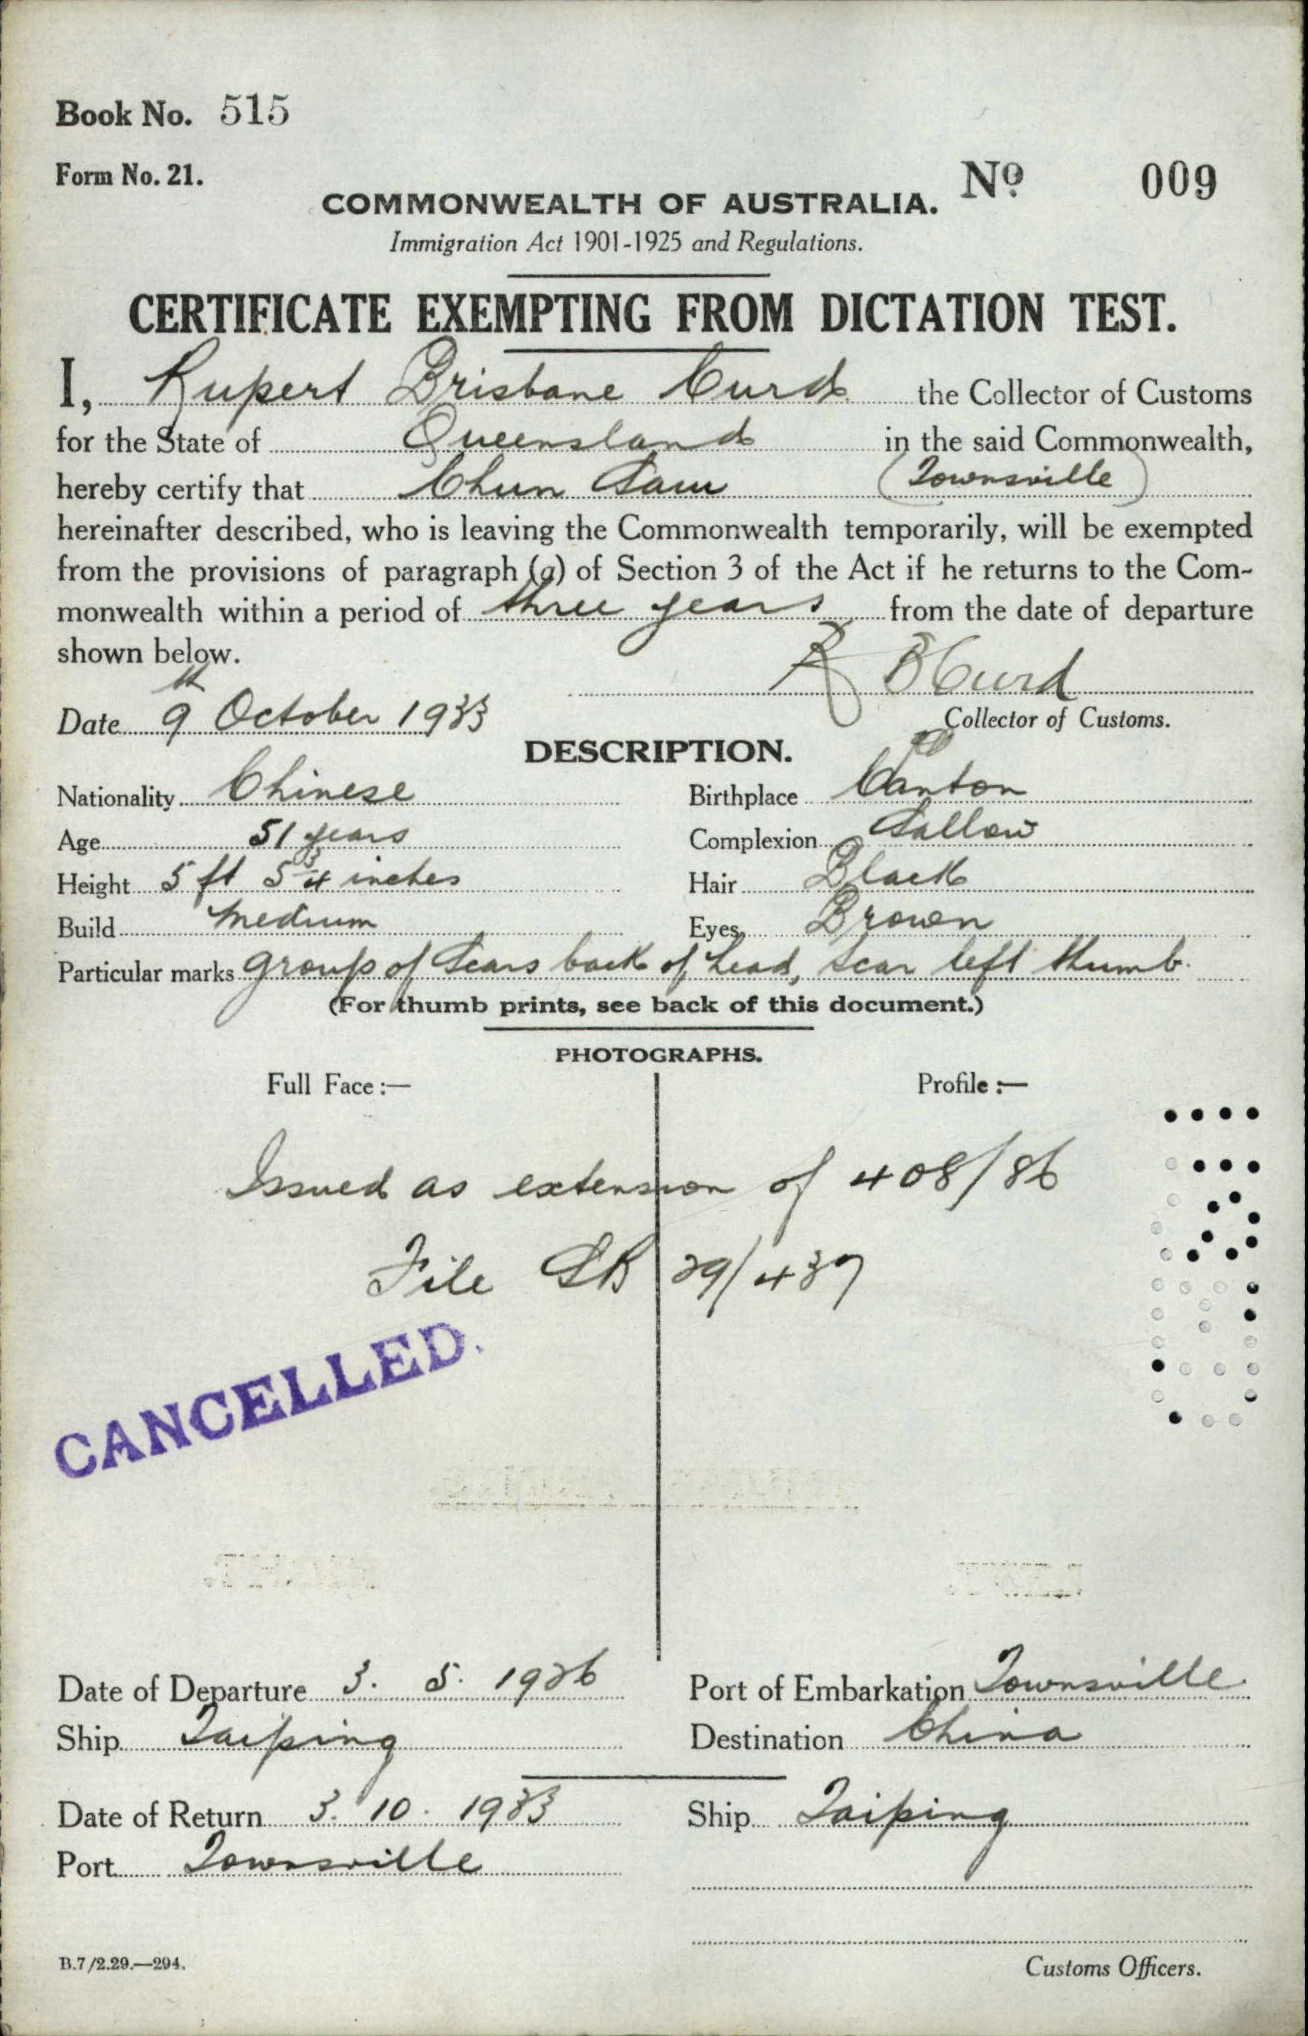 Book No. 515
Form No. 21.
No 009
COMMONWEALTH OF AUSTRALIA.
Immigration Act 1901-1925 and Regulations.
CERTIFICATE EXEMPTING FROM DICTATION TEST.
I, Rupert Brisbane Curd the Collector of Customs
for the State of Queensland in the said Commonwealth,
hereby certify that Chun Sam (Townsville)
hereinafter described, who is leaving the Commonwealth temporarily, will be exempted
from the provisions of paragraph (a) of Section 3 of the Act if he returns to the Com-
monwealth within a period of three years from the date of departure
shown below.
R B Curd
Date 9th October 1933
Collector of Customs.
DESCRIPTION.
Nationality Chinese Birthplace Canton
Age 51 years Complexion Sallow
Height 5 ft 5 3/4 inches Hair Black
Build Medium Eyes Brown
Particular marks group of scars back of head, scar left thumb.
(For thumb prints, see back of this document.)
PHOTOGRAPHS.
Full Face:— Profile:—
Issued as extension of 408/86
File 29/437
CANCELLED.
Date of Departure 3. 5. 1926 Port of Embarkation Townsville
Ship Taiping Destination China
Date of Return 3. 10. 1933 Ship Taiping
Port Townsville
B.7/2.29.—294.
Customs Officers.